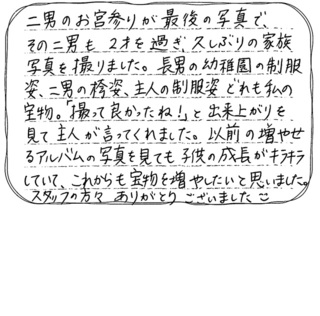 二男のお宮参りが最後の写真で、
その二男も2才を過ぎ久しぶりの家族
写真を撮りました。長男の幼稚園の制服
姿、二男の袴姿、主人の制服姿どれも私の
宝物。「撮って良かったね!」と出来上がりを
見て主人が言ってくれました。以前の増やせ
るアルバムの写真を見ても子供の成長がキラキラ
していて、これからも宝物を増やしたいと思いました。
スタッフの方々 ありがとうございました